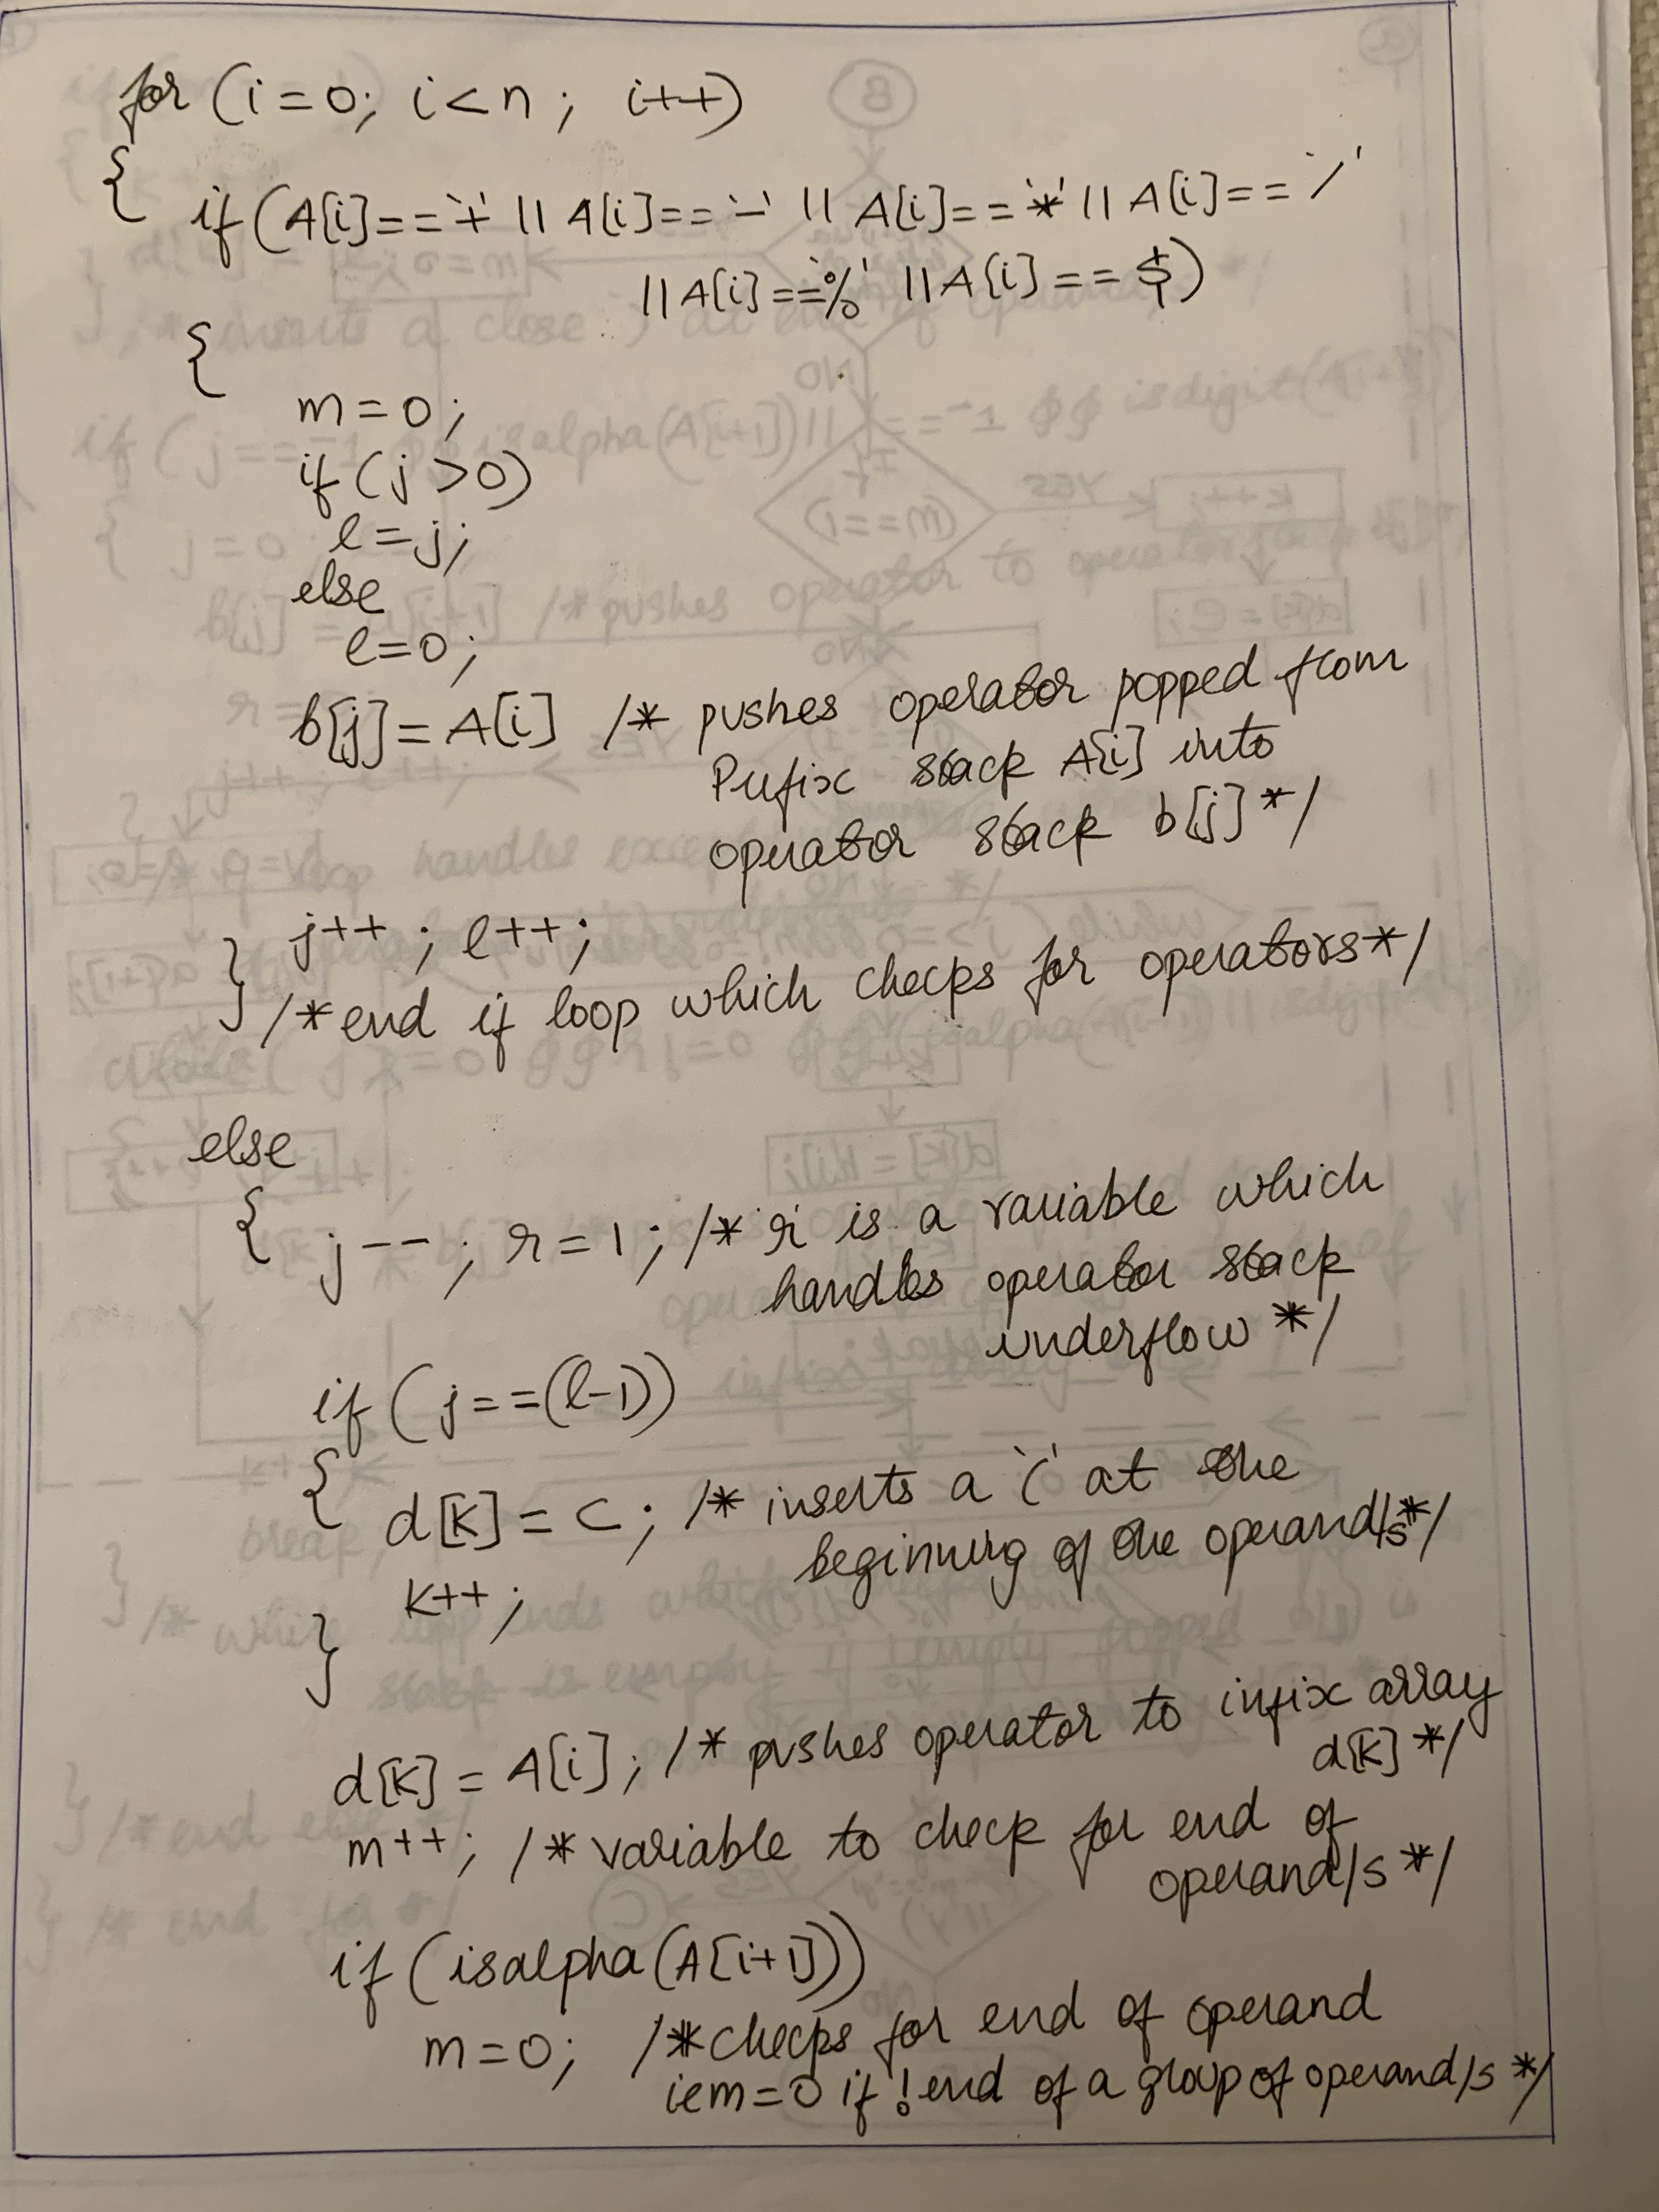 for (i=0; i<n; i++)
{
if (A[i]=='+' || A[i]=='-' || A[i]=='*' || A[i]=='/'
|| A[i]=='%' || A[i]==$)
{
m=0;
if (j>0)
l=j;
else
l=0;
b[j]=A[i] /* pushes operator popped from
Prefix stack A[i] into
operator stack b[j] */
j++; l++;
} /*end if loop which checks for operators*/
else
{ j--; r=1; /* r is a variable which
handles operator stack
underflow */
if (j==(l-1))
{
d[k]=c; /* inserts a '(' at the
beginning of the operand/s*/
k++;
}
d[k]=A[i]; /* pushes operator to infix array
d[k] */
m++; /*variable to check for end of
operand/s */
if (isalpha(A[i+1]))
m=0; /*checks for end of operand
ie m=0 if !end of a group of operand/s */